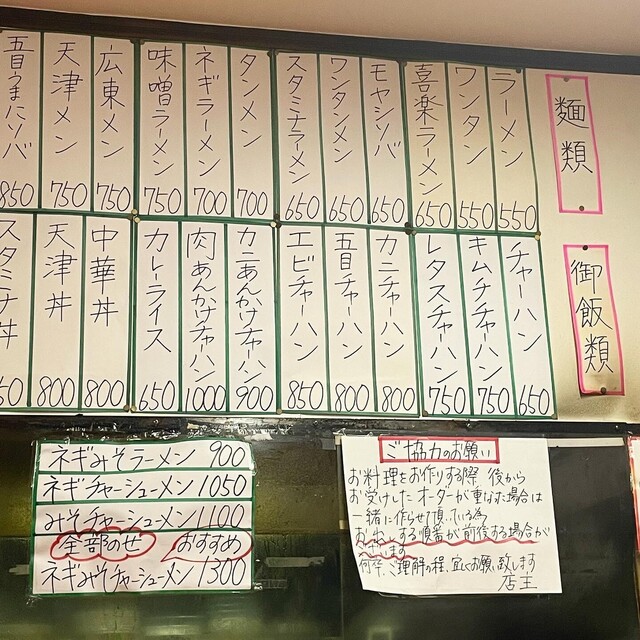 麺類
ラーメン 550
ワンタン 550
喜楽ラーメン 650
モヤシソバ 650
ワンタンメン 650
スタミナラーメン 650
タンメン 700
ネギラーメン 700
味噌ラーメン 750
広東メン 750
天津メン 750
五目うまにソバ 850
御飯類
チャーハン 650
キムチチャーハン 750
レタスチャーハン 750
カニチャーハン 800
五目チャーハン 800
エビチャーハン 850
カニあんかけチャーハン 900
肉あんかけチャーハン 1000
カレーライス 650
中華丼 800
天津丼 800
スタミナ丼
ネギみそラーメン 900
ネギチャーシューメン 1050
みそチャーシューメン 1100
全部のせ おすすめ
ネギみそチャーシューメン 1300
ご協力のお願い
お料理をお作りする際 後から
お受けしたオーダーが重なた場合は
一緒に作らせて頂いている為
お出しする順番が前後する場合が
何卒、ご理解の程、宜しくお願い致します
店主